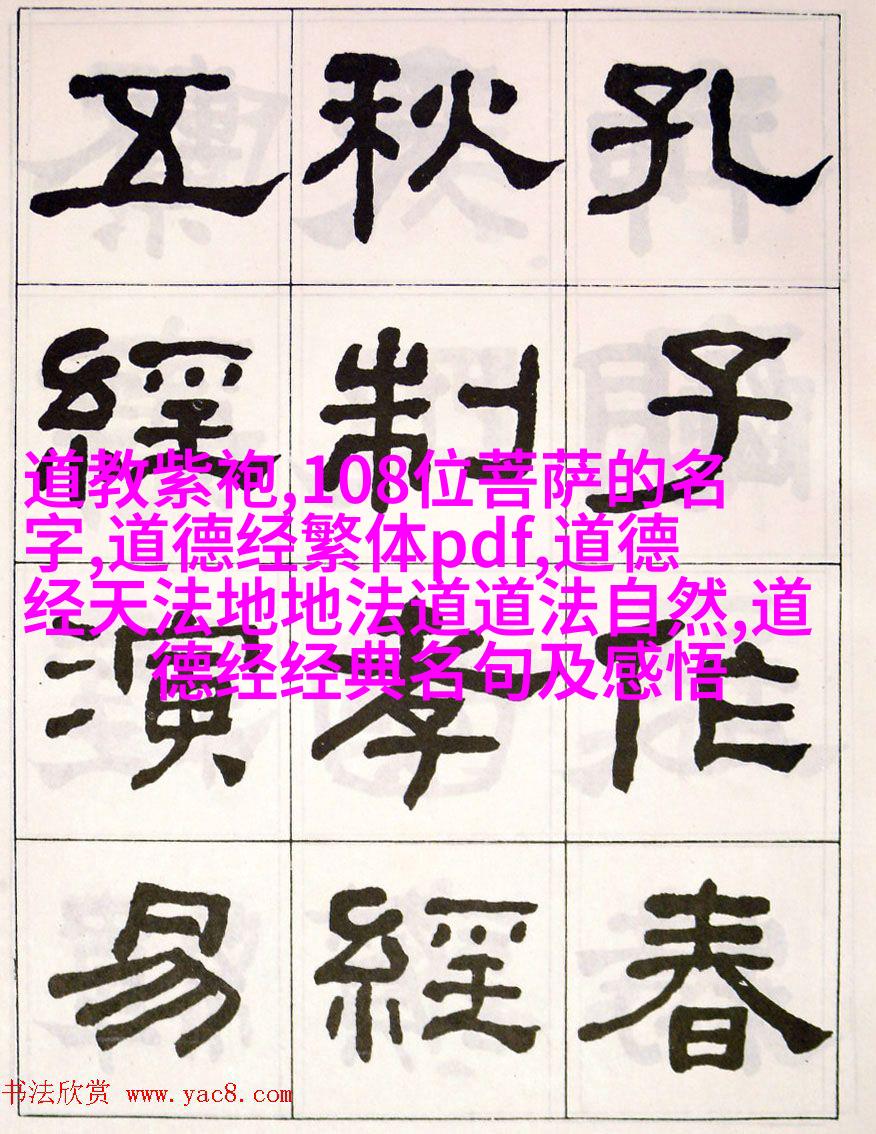 孔子作春
秋制孝經
五經演易
道教紫袍,108位菩萨的名
字,道德经繁体pdf,道德
经天法地地法道道法自然,道
德经经典名句及感悟
书法欣赏 www.yac8.com